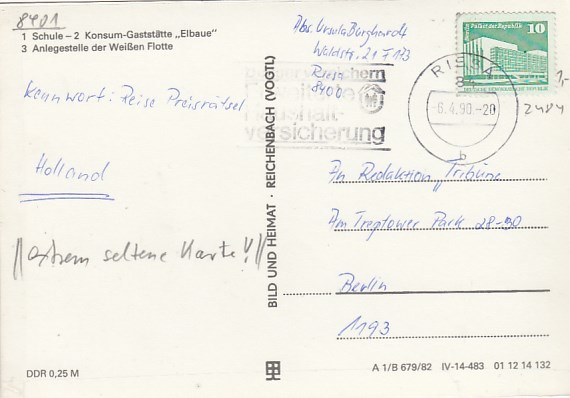 8401
1 Schule – 2 Konsum-Gaststätte „Elbaue“
3 Anlegestelle der Weißen Flotte
Kennwort: Reise Preisrätsel
Holland
//extrem seltene Karte!!//
DDR 0,25 M
BILD UND HEIMAT · REICHENBACH (VOGTL)
Abs. Ursula Burghardt
Waldstr. 21 F 173
Riesa
8400
versichern
Haushalt-
versicherung
RIESA
84
-6.4.90-20
b
Palast der Republik 10
DEUTSCHE DEMOKRATISCHE REPUBLIK
1,-
2484
An Redaktion „Tribüne
Am Treptower Park 28-30
Berlin
1193
A 1/B 679/82 IV-14-483 01 12 14 132